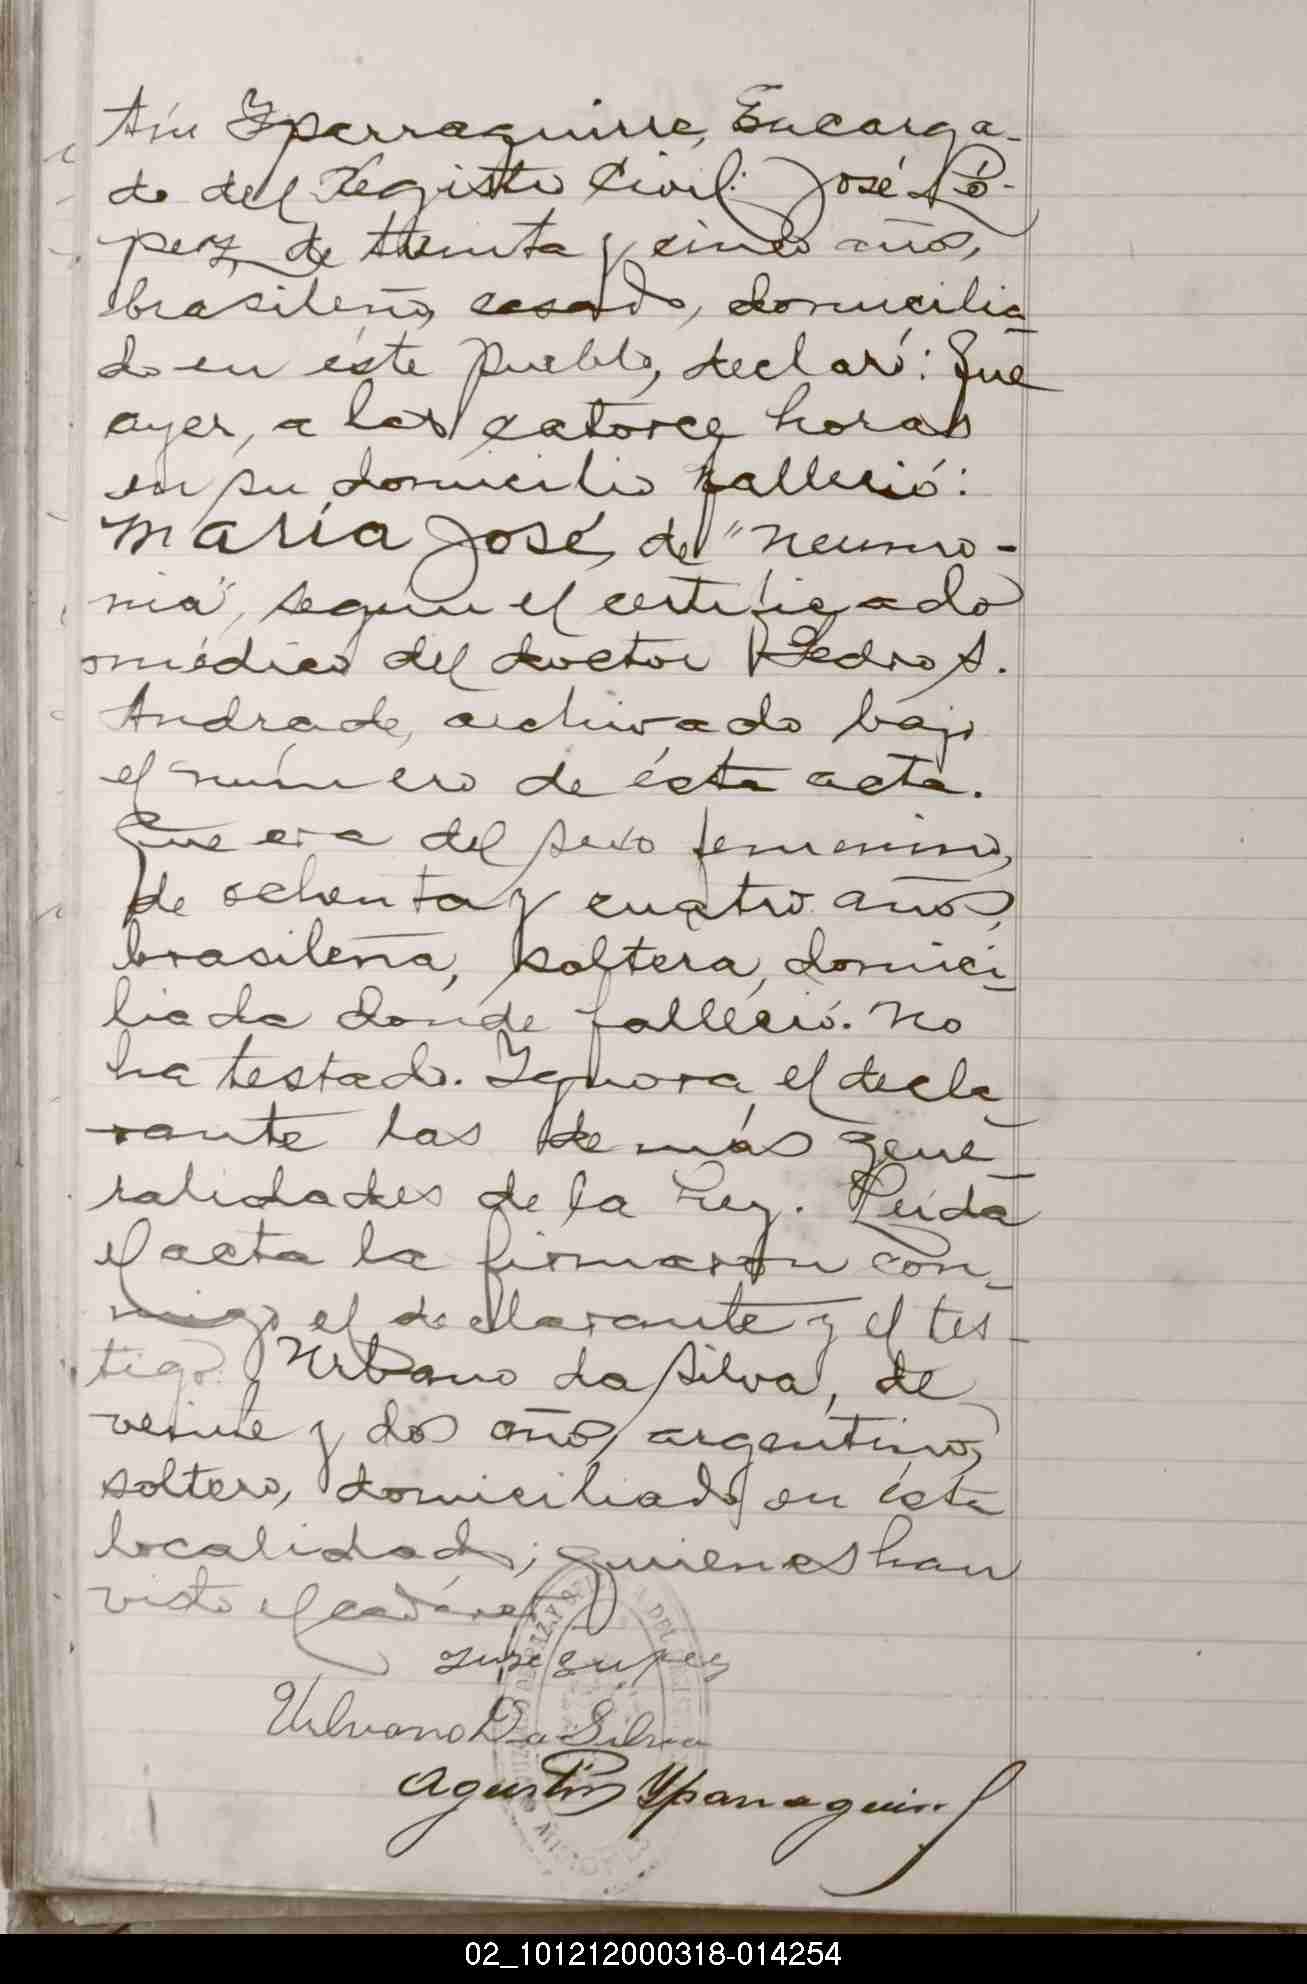 tín Yparraguirre, Encarga-
do del Registro Civil: José Ló-
pez, de treinta y cinco años,
brasileño, casado, domicilia-
do en éste pueblo, declaró: Que
ayer, a las catorce horas
en su domicilio falleció:
María José, de "neumo-
nia", según el certificado
médico del doctor Pedro A.
Andrade, archivado bajo
el número de ésta acta.
Que era del sexo femenino,
de ochenta y cuatro años,
brasileña, soltera, domici-
liada donde falleció. No
ha testado. Ignora el decla-
rante las demás gene-
ralidades de la Ley. Leída
el acta la firmaron con-
migo el declarante y el tes-
tigo Urbano da Silva, de
veinte y dos años, argentino,
soltero, domiciliado en ésta
localidad; quienes han
visto el cadáver
Urbano Da Silva
Agustín Yparraguirre
02_101212000318-014254